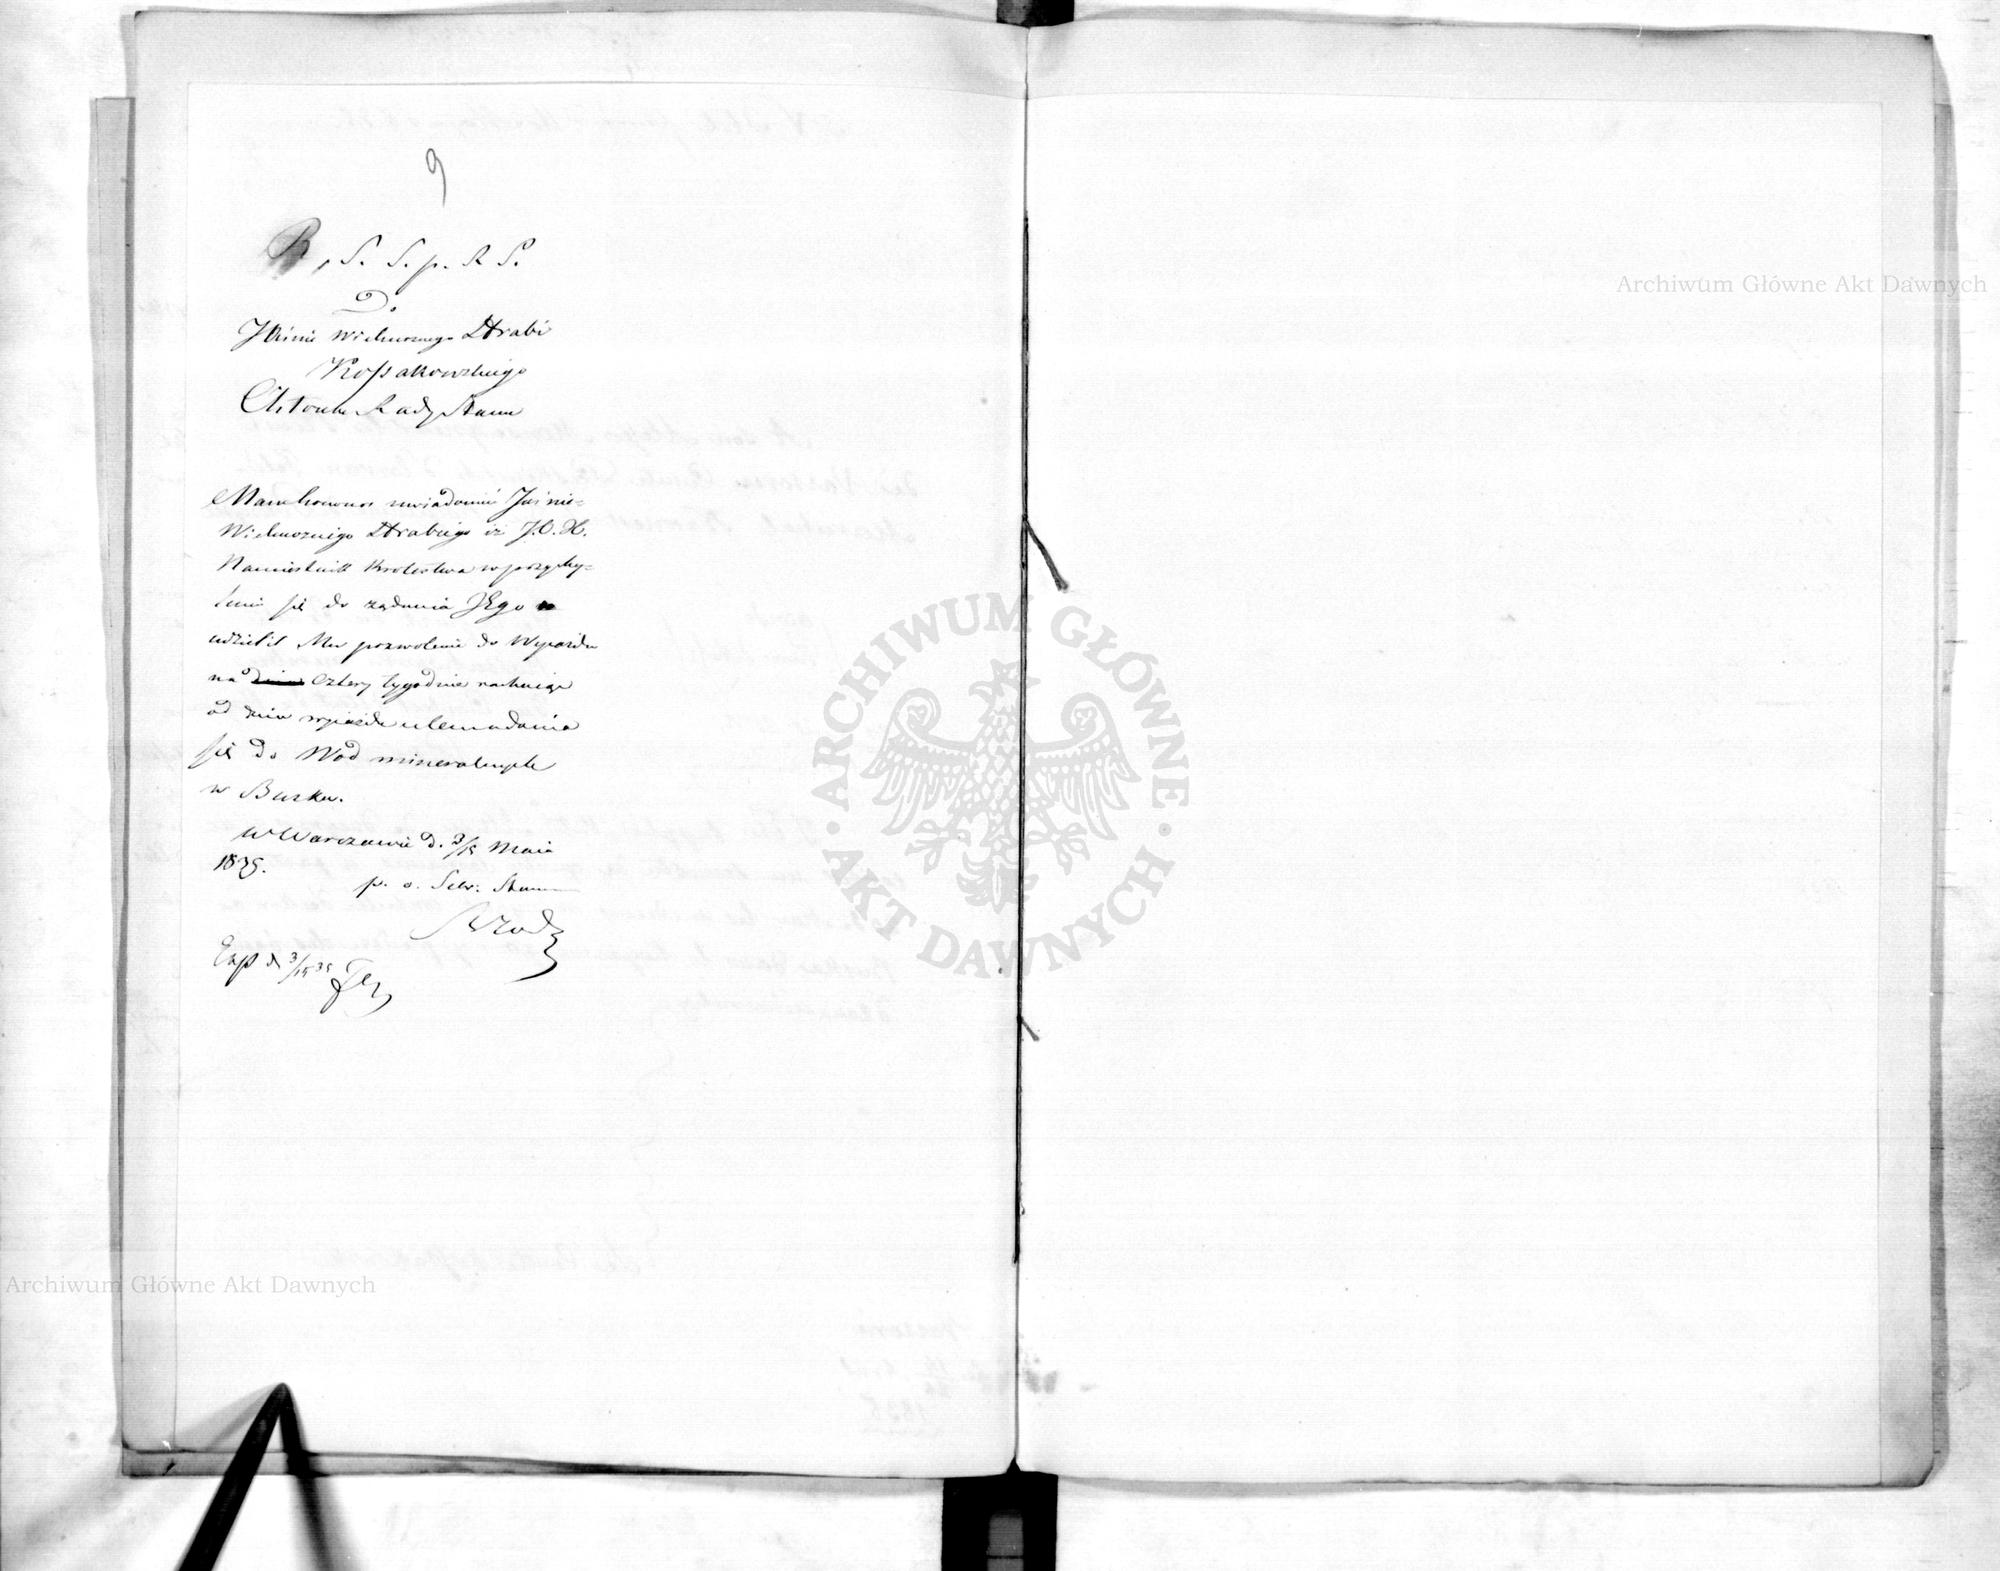 9
R. S. S. p. R S.
Do
JWśnie Wielmożnego Hrabi
Kossakowskiego
Członka Rady Stanu
Mam honor uwiadomić Jaśnie-
Wielmożnego Hrabiego iż J.O.X.
Namiestnik Królestwa w przychy-
leniu się do żądania JEgo
udzielił Mu pozwolenie do Wyjazdu
na cztery tygodnie rachując
od dnia wyjazdu celem udania
się do Wód mineralnych
w Busku.
w Warszawie d. 3/15 Maia
1835.
p. o. Sekr: Stanu
Exp d 3/15 35
Archiwum Główne Akt Dawnych
ARCHIWUM GŁÓWNE · AKT DAWNYCH ·
Archiwum Główne Akt Dawnych